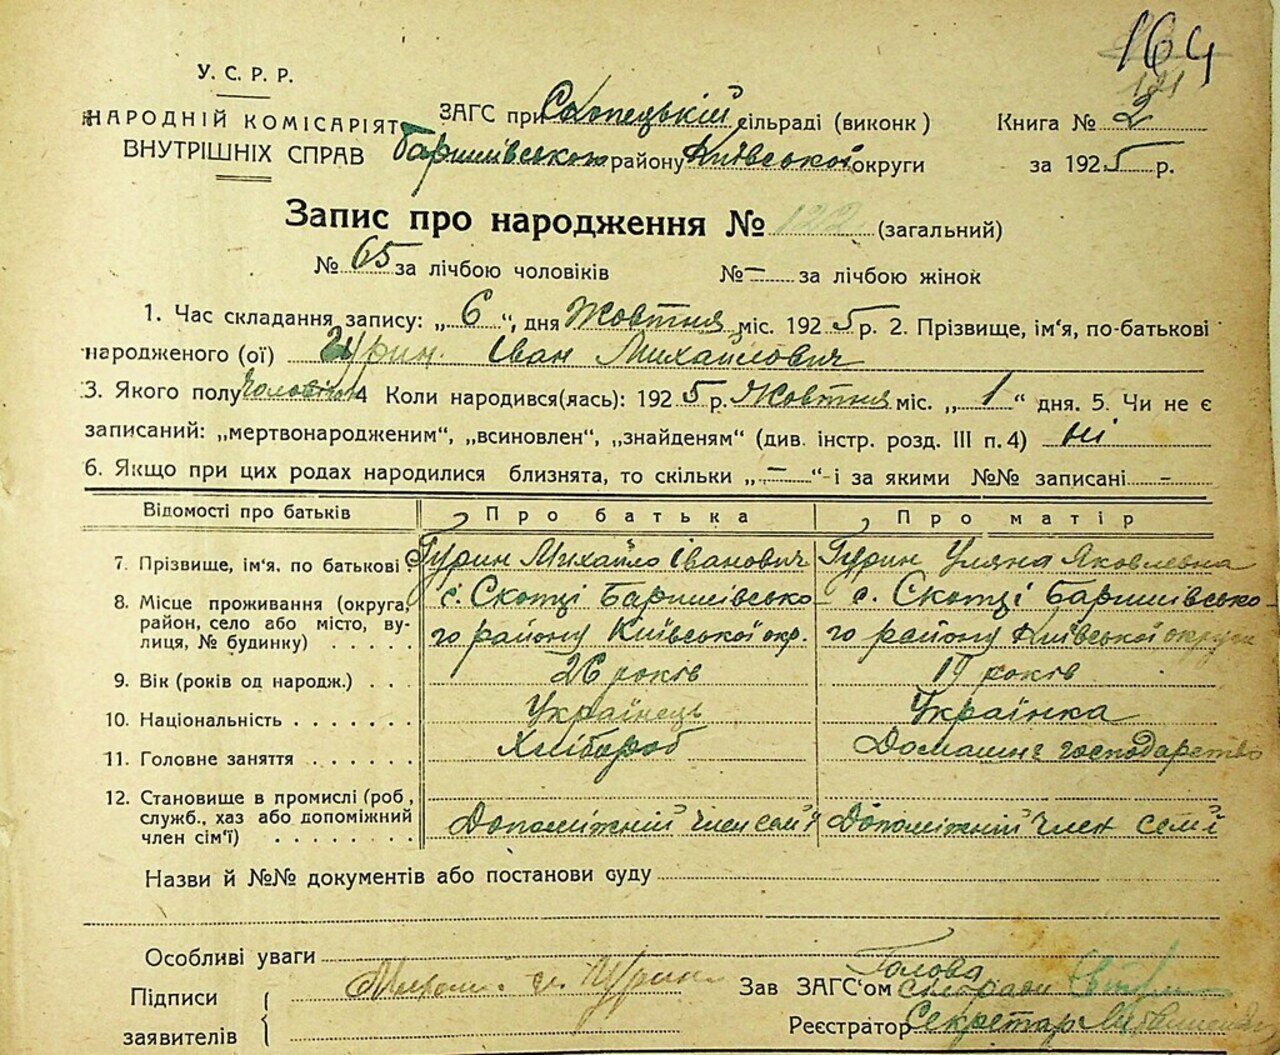 164
У. С. Р. Р.
НАРОДНІЙ КОМІСАРІЯТ
ВНУТРІШНІХ СПРАВ
ЗАГС при Скопецькій сільраді (виконк)
Баришівського району Київської округи
Книга № 2
за 1925 р.
Запис про народження № 122 (загальний)
№ 65 за лічбою чоловіків № – за лічбою жінок
1. Час складання запису: „ 6 “, дня Жовтня міс. 1925 р. 2. Прізвище, ім'я, по-батькові
народженого (ої) Гурин Іван Михайлович
3. Якого полу 4 Коли народився(лась): 1925 р. Жовтня міс. „ 1 “ дня. 5. Чи не є
записаний: „мертвонародженим“, „всиновлен“, „знайденям“ (див. інстр. розд. III п. 4) ні
6. Якщо при цих родах народилися близнята, то скільки „ – “ і за якими №№ записані –
Відомості про батьків Про батька Про матір
7. Прізвище, ім'я, по батькові Гурин Михайло Іванович Гурин Уляна Яковлевна
8. Місце проживання (округа, с. Скопці Баришівсько- с. Скопці Баришівсько-
район, село або місто, ву-
лиця, № будинку) го району Київської окр. го району Київської округи
9. Вік (років од народж.) 26 років 19 років
10. Національність Українець Українка
11. Головне заняття Хлібороб Домашнє господарство
12. Становище в промислі (роб,
служб., хаз або допоміжний Допоміжний член сем'ї Допоміжний член семї
член сім'ї)
Назви й №№ документів або постанови суду
Особливі уваги
Підписи
заявителів
Гурин
Голова
Зав ЗАГС'ом сільради
Реєстратор Секретар